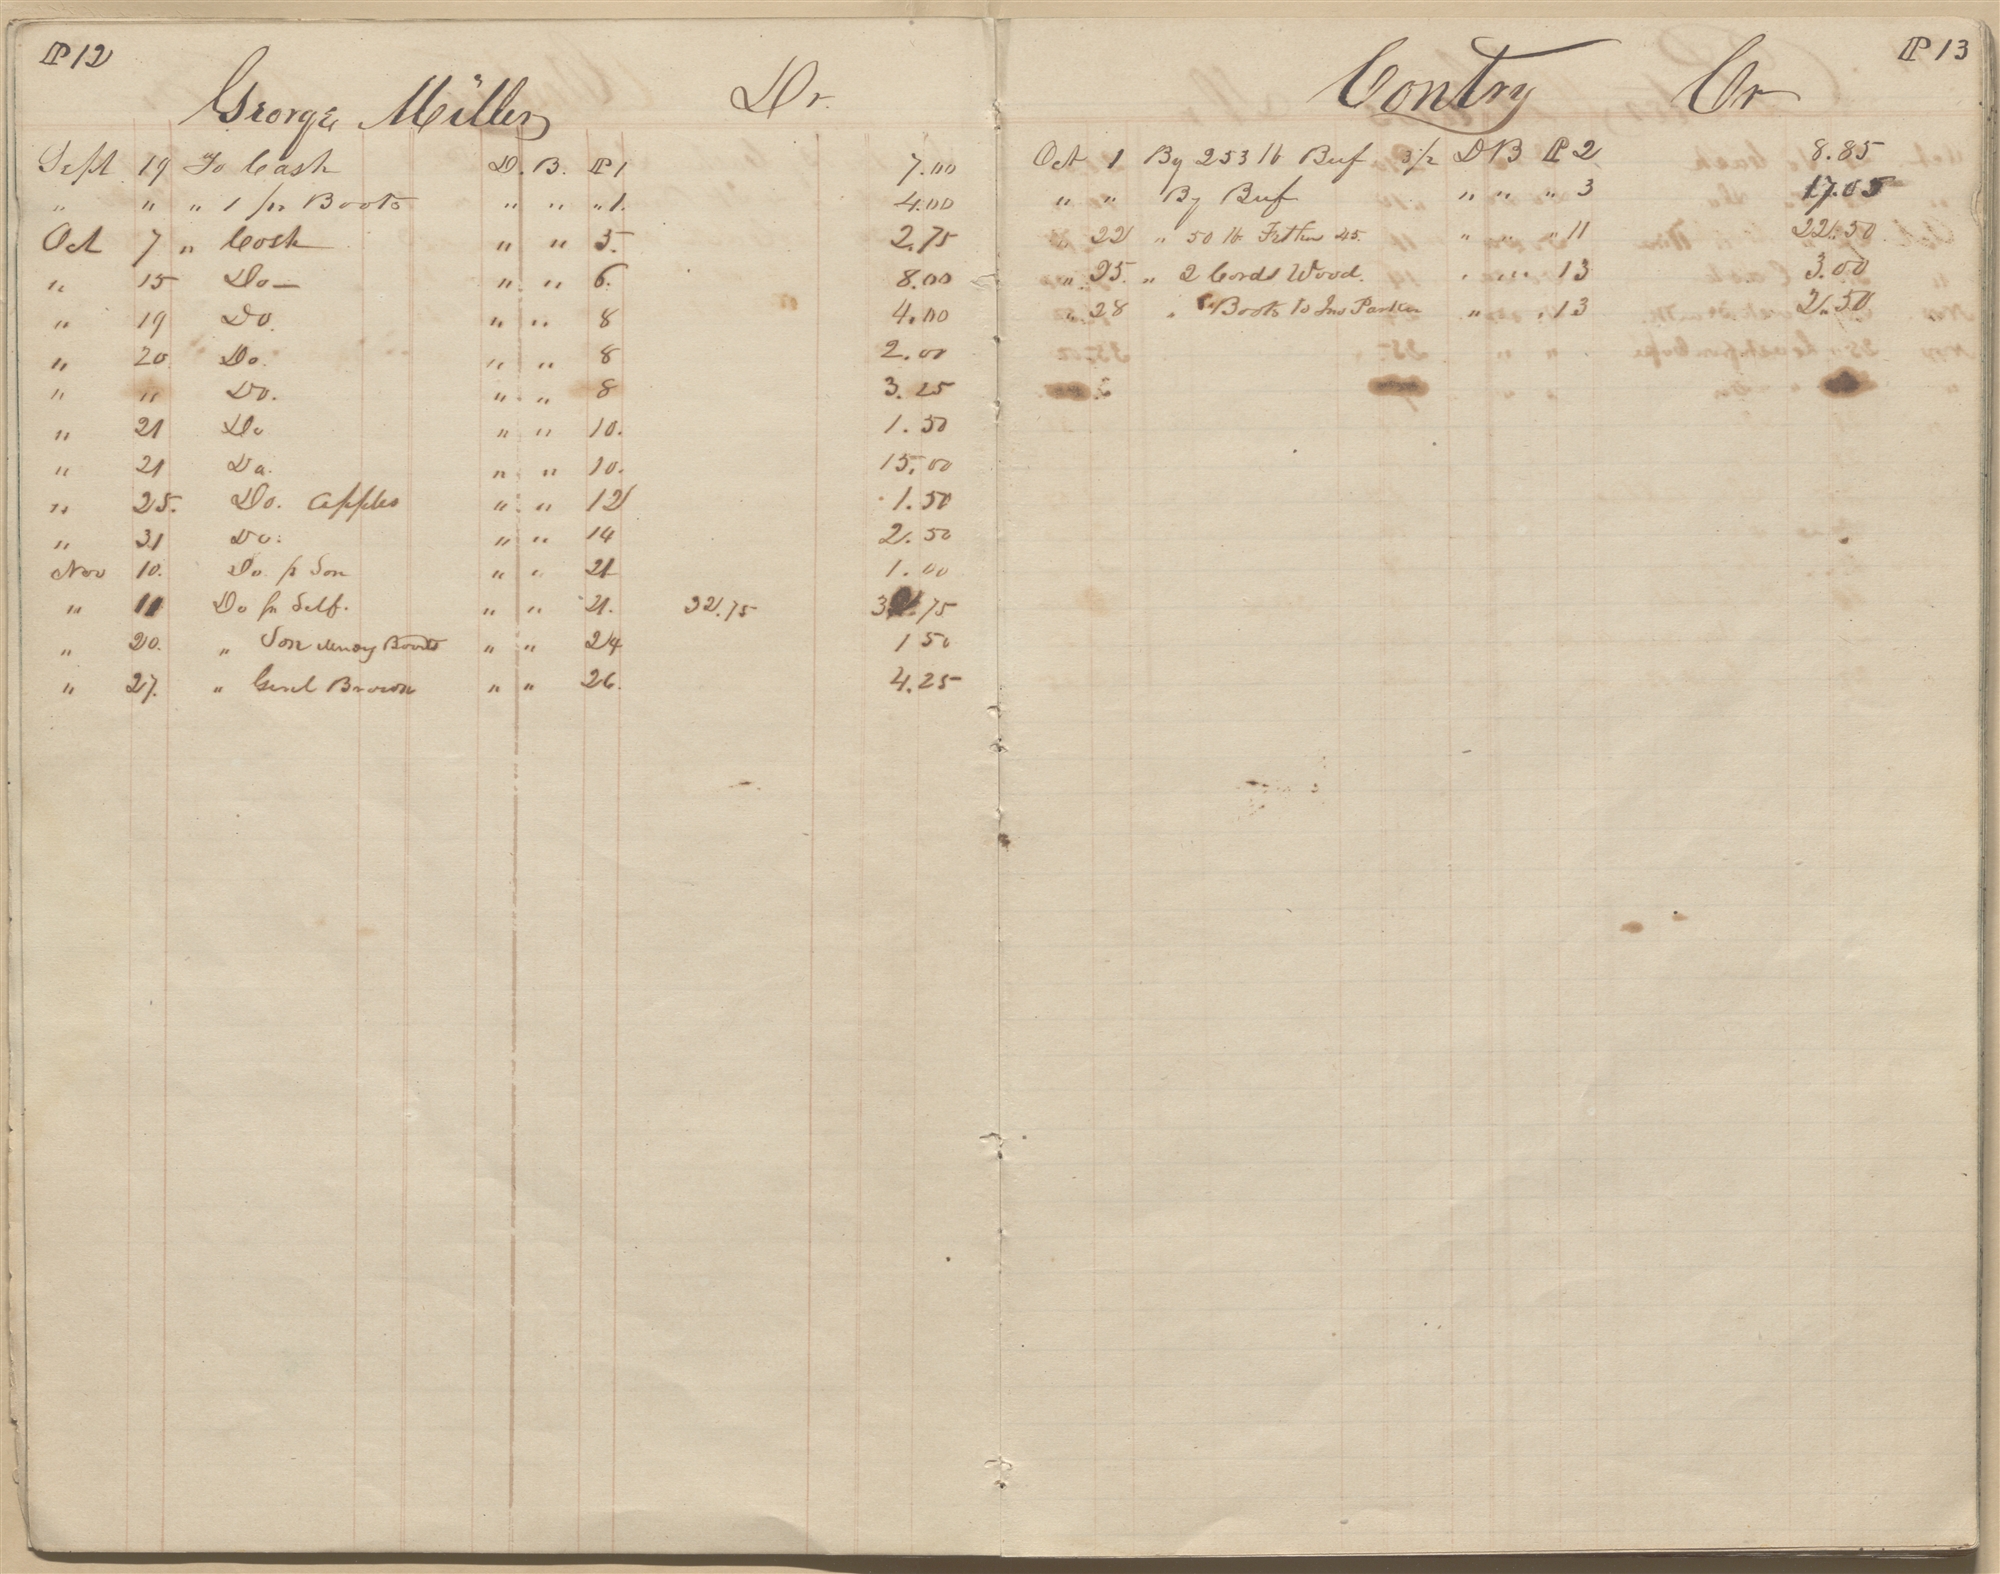 P 12
George Miller Dr.
Sept 19 To Cash D. B. P 1 7.00
" " " 1 pr Boots " " " 1. 4.00
Oct 7 " Cash " " 5. 2.75
" 15 Do — " " 6. 8.00
" 19 Do. " " 8 4.00
" 20. Do. " " 8 2.00
" " Do. " " 8 3.25
" 21 Do " " 10. 1.50
" 21 Do. " " 10. 15.00
" 25. Do. Apples " " 12 1.50
" 31 Do. " " 14 2.50
Nov 10. Do. p Son " " 21 1.00
" 11 Do pr Self. " " 21. 32.75 32.75
" 20. " Son Boots " " 24 1 50
" 27. " Brown " " 26. 4.25
P 13
Contry Cr
Oct 1 By 253 lb Beef 3 1/2 D B P 2 8.85
" " By Beef " " " 3 17.05
" 22 " 50 lb 45. " " " 11 22.50
" 25. " 2 Cords Wood. " " " 13 3.00
" 28 " Boots to Jno Parker " " 13 2.50